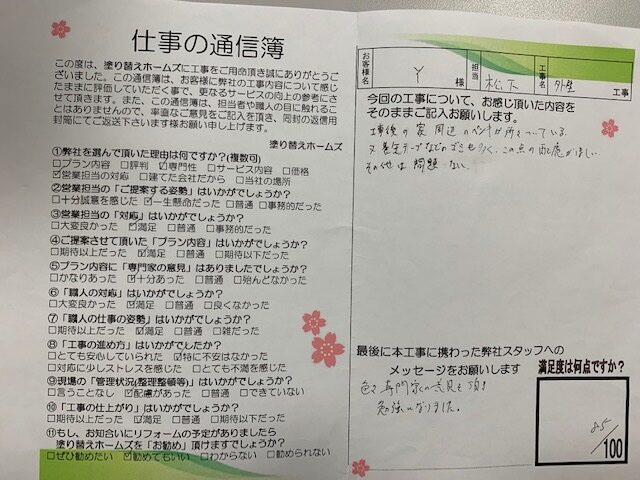 仕事の通信簿
この度は、塗り替えホームズに工事をご用命頂き誠にありがとうご
ざいました。この通信簿は、お客様に弊社の工事内容について感じ
たままに評価していただく事で、更なるサービスの向上の参考にさ
せて頂きます。また、この通信簿は、担当者や職人の目に触れるこ
とはありませんので、率直なご意見をご記入を頂き、同封の返信用
封筒にてご返送下さいます様お願い申し上げます。
塗り替えホームズ
①弊社を選んで頂いた理由は何ですか?(複数可)
□プラン内容 □評判 ☑専門性 □サービス内容 □価格
☑営業担当の対応 □建てた会社だから □当社の場所
②営業担当の「ご提案する姿勢」はいかがでしょうか?
□十分誠意を感じた ☑一生懸命だった □普通 □事務的だった
③営業担当の「対応」はいかがでしょうか?
□大変良かった ☑満足 □普通 □事務的だった
④ご提案させて頂いた「プラン内容」はいかがでしょうか?
□期待以上だった ☑満足 □普通 □期待以下だった
⑤プラン内容に「専門家の意見」はありましたでしょうか?
□かなりあった ☑十分あった □普通 □殆んどなかった
⑥「職人の対応」はいかがでしょうか?
□大変良かった ☑満足 □普通 □良くなかった
⑦「職人の仕事の姿勢」はいかがでしょうか?
□期待以上だった ☑満足 □普通 □雑だった
⑧「工事の進め方」はいかがでしたか?
□とても安心していられた ☑特に不安はなかった
□対応に少しストレスを感じた □とても不満を感じた
⑨現場の「管理状況(整理整頓等)」はいかがでしょうか?
□言うことなし ☑配慮があった □普通 □できていない
⑩「工事の仕上がり」はいかがでしょうか?
□期待以上だった ☑満足 □普通 □期待以下だった
⑪もし、お知合いにリフォームの予定がありましたら
塗り替えホームズを「お勧め」頂けますでしょうか?
□ぜひ勧めたい ☑勧めてもいい □わからない □勧められない
お客様名 Y 様 担当 松下 工事名 外壁 工事
今回の工事について、お感じ頂いた内容を
そのままご記入お願いします。
工事後の家周辺のペンキが所々ついている
又養生テープなどのゴミも多く、この点の配慮がほしい
その他は問題ない。
最後に本工事に携わった弊社スタッフへの
メッセージをお願いします
色々専門家の意見を頂き
勉強になりました。
満足度は何点ですか?
85
/100